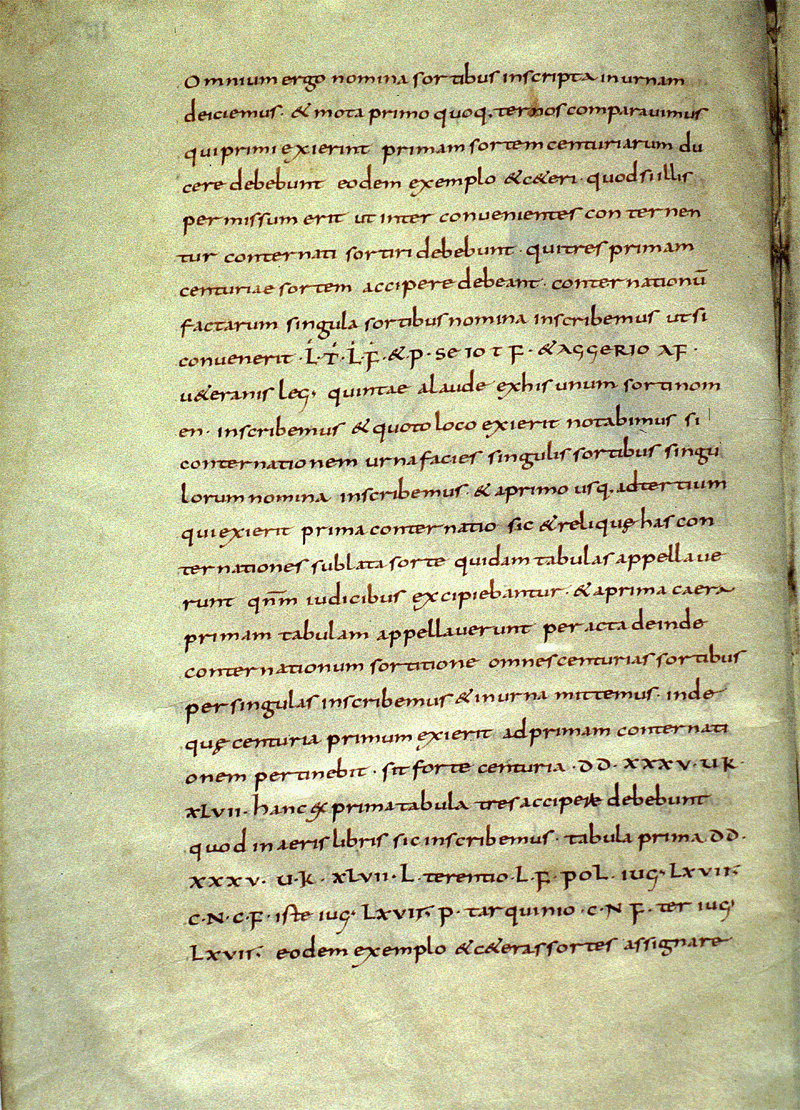 Omnium ergo nomina sortibus inscripta in urnam
deiciemus· & mota primo quoq, ternos comparavimus
qui primi exierint primam sortem centuriarum du
cere debebunt eodem exemplo &c&eri· quod si illis
permissum erit ut inter convenientes con ternen
tur conternati sortiri debebunt· qui tres primam
centuriae sortem accipere debeant· conternationū
factarum singula sortibus nomina inscribemus ut si
convenerit · L· T· L· F· & P· SEIO T F· & AGGERIO AF·
u&eranis leg· quintae alaude ex his unum sorti nom
en· inscribemus & quoto loco exierit notabimus si
conternationem urna facies singulis sortibus singu
lorum nomina inscribemus· & a primo usq, ad tertium
qui exierit prima conternatio sic & reliquę has con
ternationes sublata sorte quidam tabulas appellave
runt qn̄m iudicibus excipiebantur· & a prima caera
primam tabulam appellaverunt peracta deinde
conternationum sortitione omnes centurias sortibus
per singulas inscribemus & in urna mittemus· inde
quę centuria primum exierit ad primam conternati
onem pertinebit · sit forte centuria · DD· XXXV· UK·
XLVII· hanc ex prima tabula tres accipere debebunt
quod in aeris libris sic inscribemus· tabula prima DD·
XXXV· U·K· XLVII· L· terentio· L· F· POL· iug· LXVIS·
C·N·C·F· iste iug· LXVIS· P· tarquinio· C·N F· ter iug·
LXVIS· eodem exemplo &c&eras sortes assignare